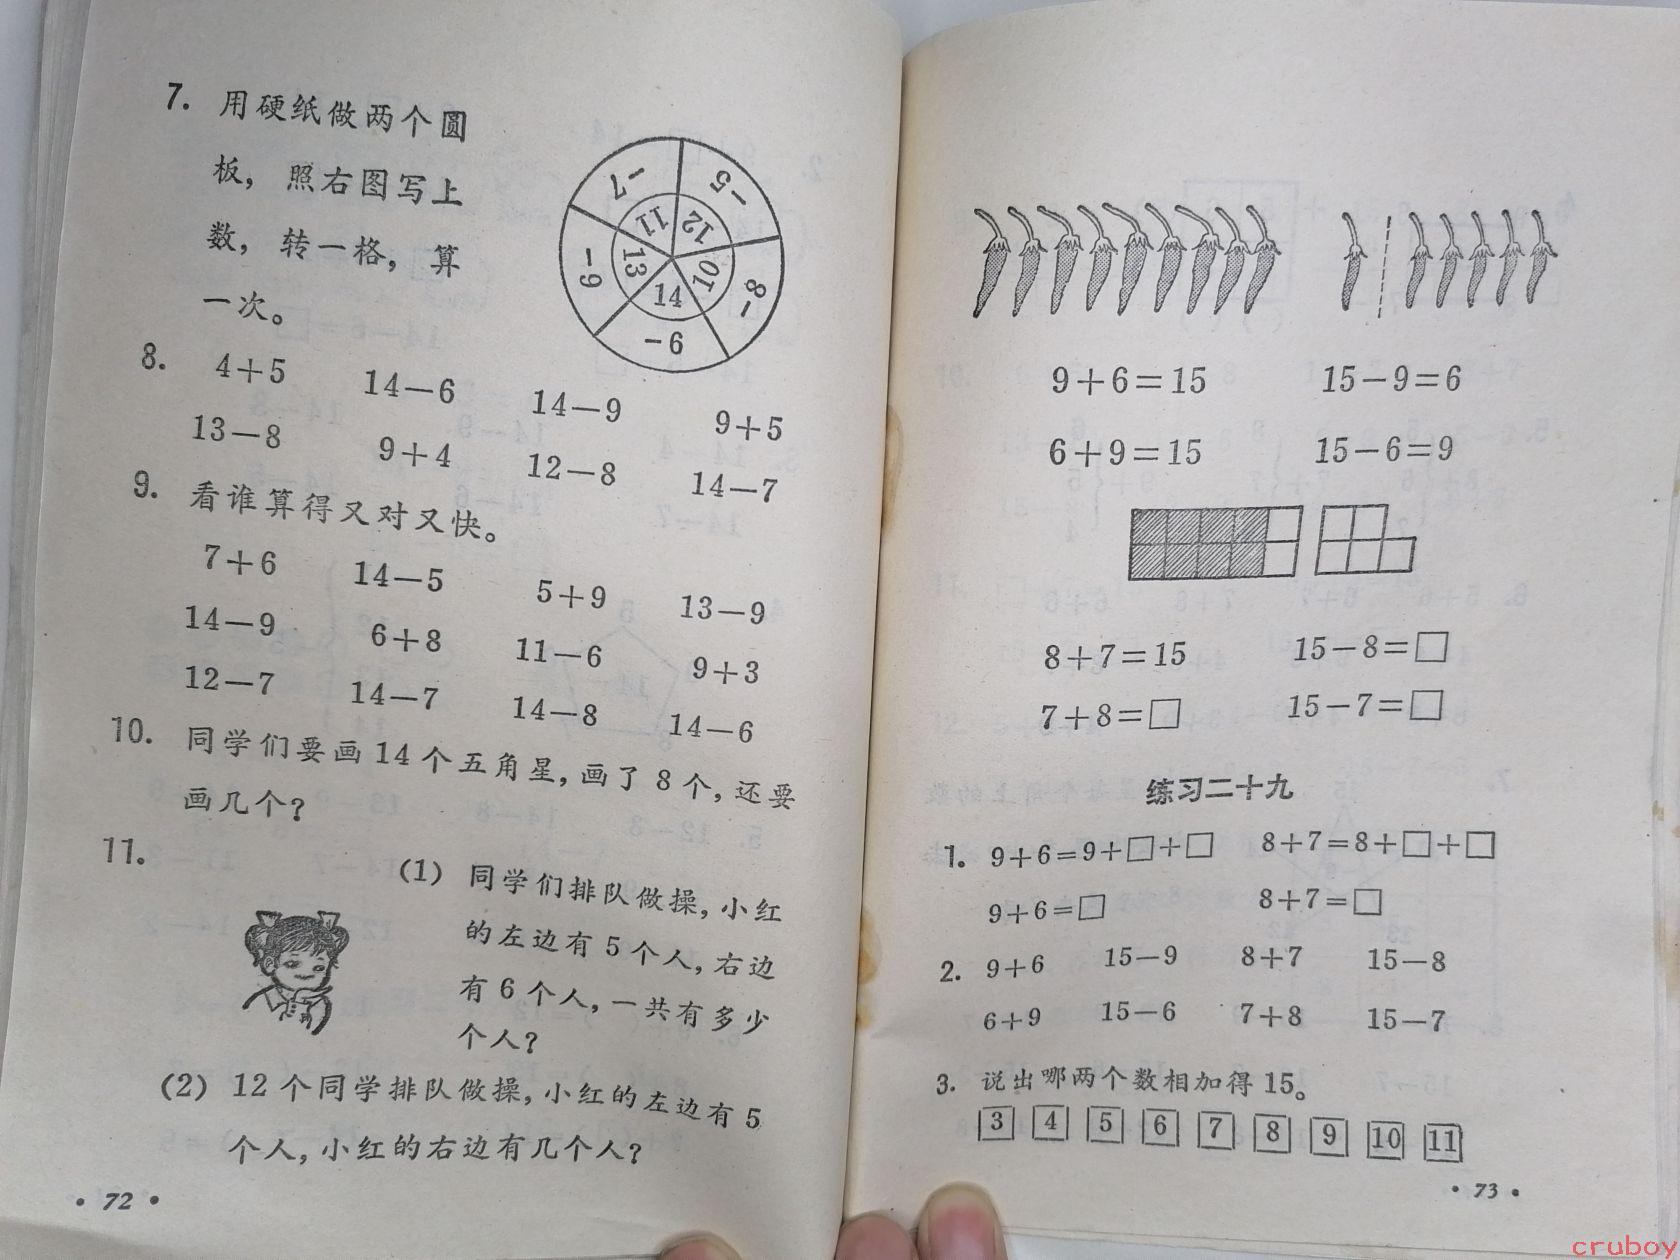 7. 用硬纸做两个圆
板，照右图写上
数，转一格，算
一次。
-7 -5 -8 -6 -9
11 12 10 14 13
8. 4+5 14-6 14-9 9+5
13-8 9+4 12-8 14-7
9. 看谁算得又对又快。
7+6 14-5 5+9 13-9
14-9 6+8 11-6 9+3
12-7 14-7 14-8 14-6
10. 同学们要画14个五角星，画了8个，还要
画几个？
11. (1) 同学们排队做操，小红
的左边有5个人，右边
有6个人，一共有多少
个人？
(2) 12个同学排队做操，小红的左边有5
个人，小红的右边有几个人？
·72·
9+6=15 15-9=6
6+9=15 15-6=9
8+7=15 15-8=□
7+8=□ 15-7=□
练习二十九
1. 9+6=9+□+□ 8+7=8+□+□
9+6=□ 8+7=□
2. 9+6 15-9 8+7 15-8
6+9 15-6 7+8 15-7
3. 说出哪两个数相加得15。
3 4 5 6 7 8 9 10 11
·73·
cruboy